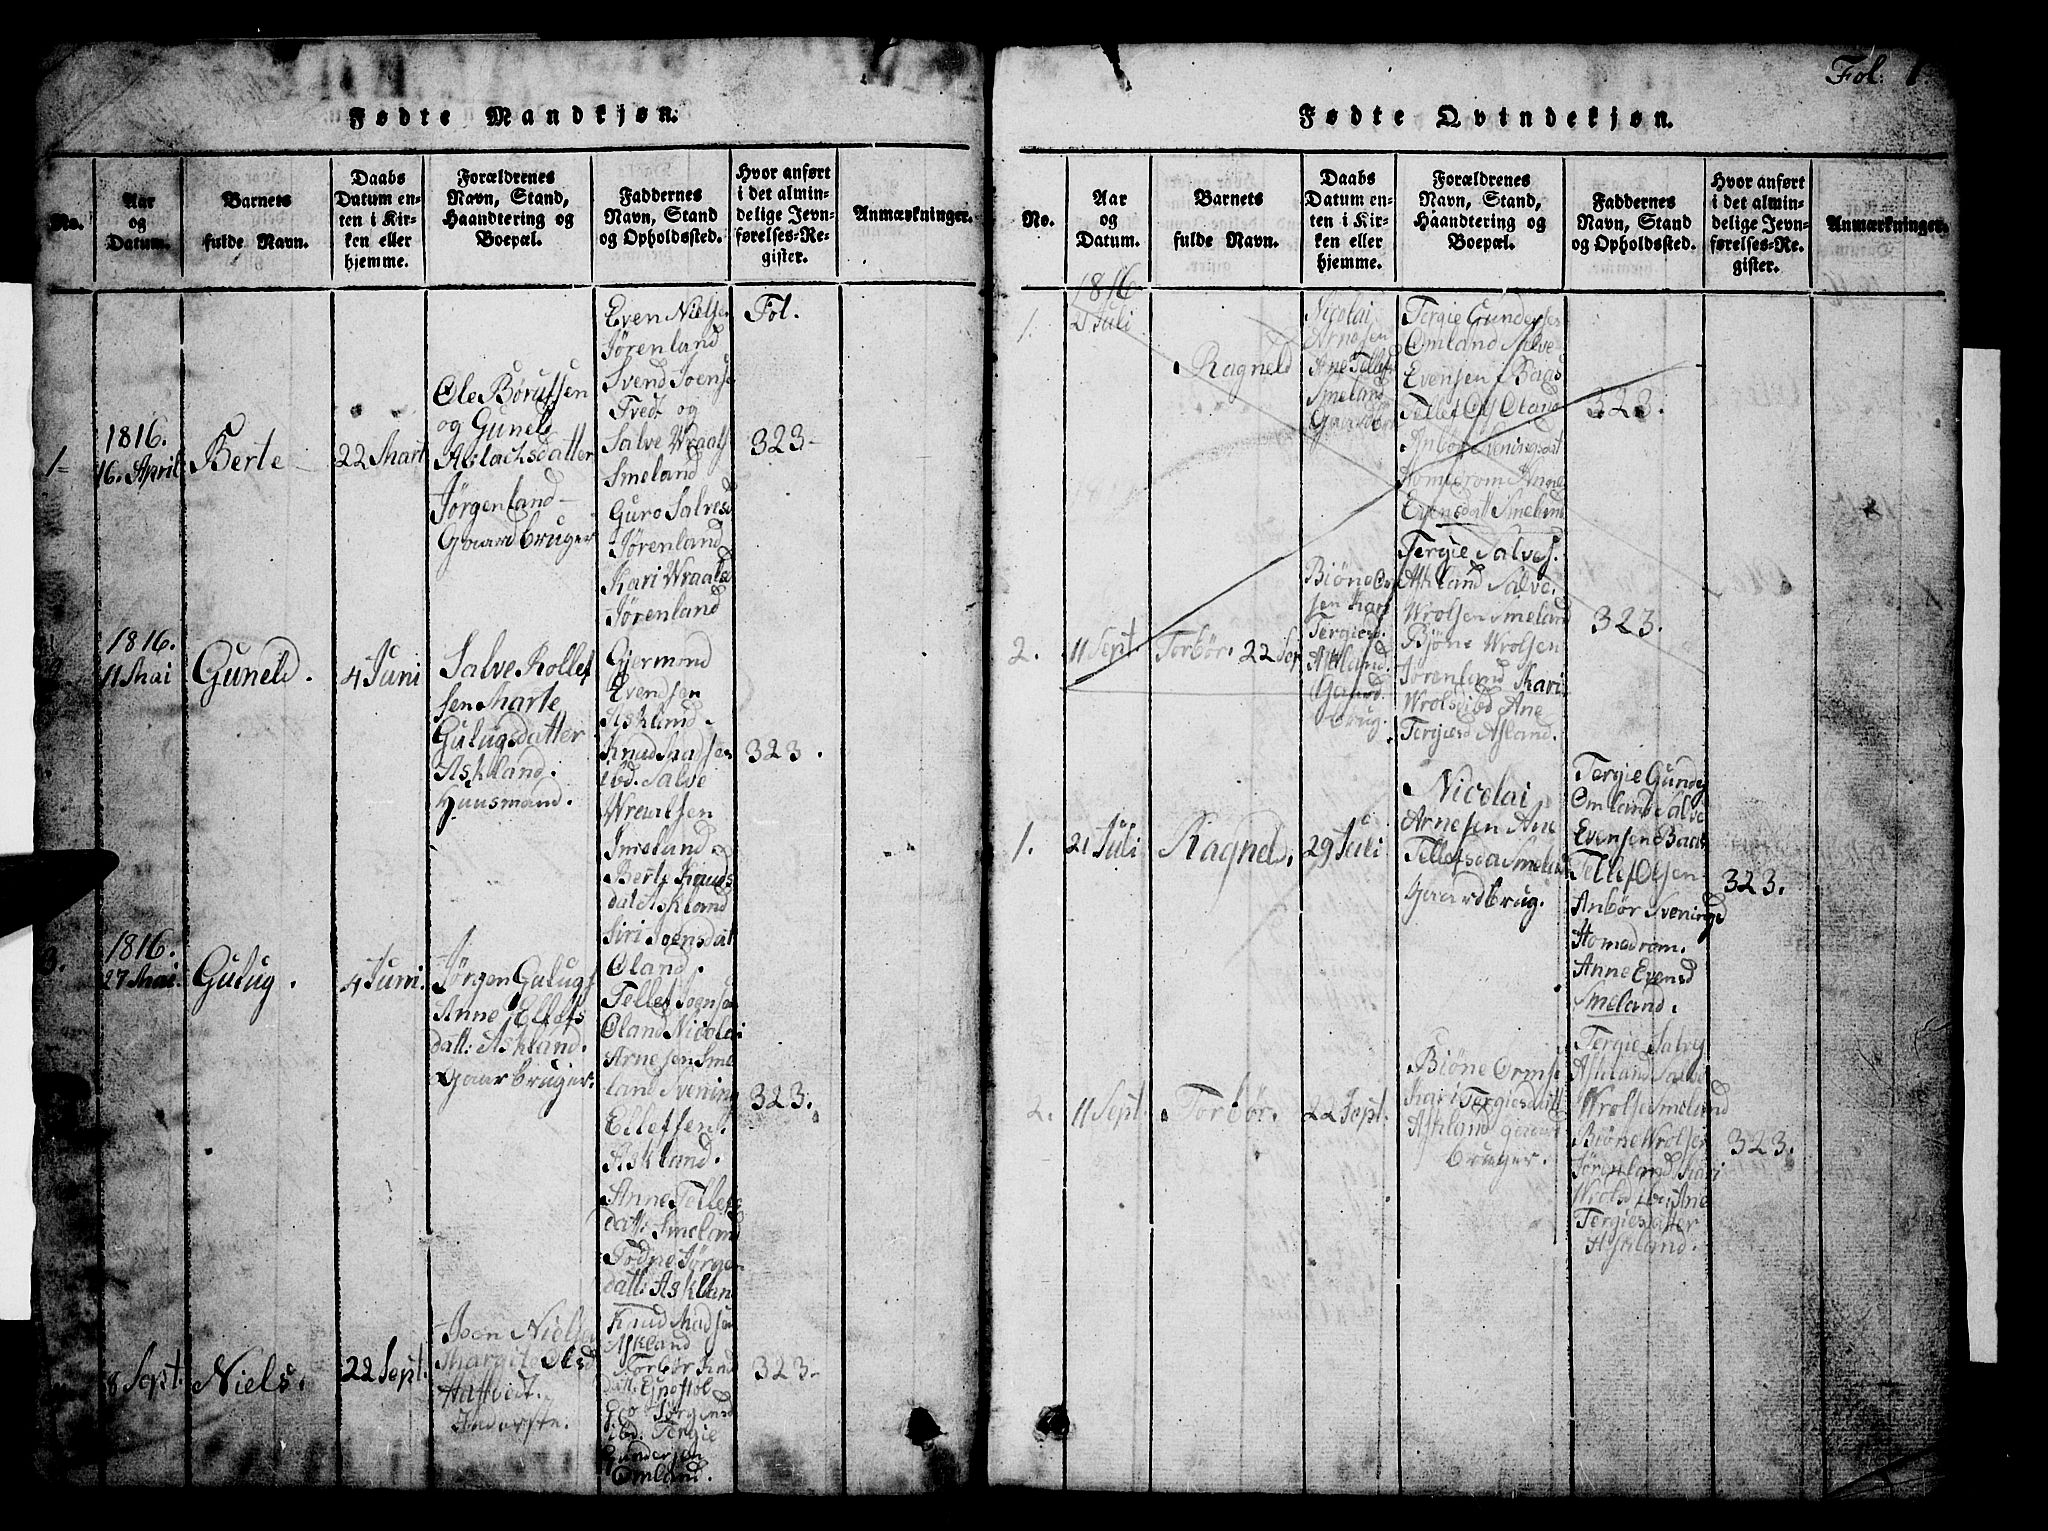 Fol: 1
Fødte Mandkjøn.
No.
Aar
og
Datum.
Barnets
fulde Navn.
Daabs
Datum en-
ten i Kir-
ken eller
hjemme.
Forældrenes
Navn, Stand,
Haandtering og
Boepæl.
Faddernes
Navn, Stand
og Opholdssted.
Hvor anført
i det almin-
delige Jevn-
førelses-Re-
gister.
Anmærkninger.
1
1816.
16. April
Berte
22 Mart
Ole
og Guneld
Aslachsdatter
Jørgenland
Gaardbruger
Even Nielse
Jørenland
Svend Joens
Tvedt og
Salve Wraals
Smeland
Guro Salvesd
Jørenland
Kari Wraalsd
Jørenland
Fol.
323
1816.
11 Mai
Guneld.
4 Juni
Salve Rollef
sen Marte
Gulugsdatter
Askland.
Huusmand.
Gjermond
Evendsen
Askland.
Knud Madsen
ibd. Salve
Wraalsen
Smeland.
Berte Knuds
dat Askland
Siri Joensdat
Øland.
323.
3.
1816.
27 Mai
Gulug.
4 Juni
Jørgen Gulugs
Anne Ellefs
datt: Askland.
Gaarbruger.
Tellef
Øland Nicolai
Arnesen Sme
land Svening
Ellefsen
Askland.
Anne Tellefs
datt: Smeland
Todne Jørgen
datt: Askland
323.
8 Sept.
Niels.
22 Sept.
Joen Nielsen
Margit Olsd
Knud Madsen
Askland
Torbør Knud
datt:
ibd. Tergie
Gundersen
Omland.
323.
Fødte Qvindekjøn.
No.
Aar
og
Datum.
Barnets
fulde Navn.
Daabs
Datum en-
ten i Kir-
ken eller
hjemme.
Forældrenes
Navn, Stand,
Haandtering og
Boepæl.
Faddernes
Navn, Stand
og Opholdssted.
Hvor anført
i det almin-
delige Jevn-
førelses-Re-
gister.
Anmærkninger.
1.
1816
21 Juli
Ragneld
Nicolai
Arnesen
Ane Tellefs
Smeland
Gaardbr
Tergie Gunderse
Omland Salve
Evensen Baas
Tellef Ols Øland
Anbør Sveningsdat
Homdrom Anne
Evensdatt Smeland
323.
2.
11 Sept.
Torbør.
22 Sep
Biøne Or
sen Kari
Tergiesd.
Askland.
Gaard
brug.
Tergie Salves.
Askland Salve
Wrolsen Smeland
Bjøne Wrolsen
Jørenland Kari
Wrolsd ibd Ane
Tergiesd Asland.
323.
1.
21 Juli
Ragnel.
29 Juli
Nicolai
Arnesen Ane
Tellefsda Smeland
Gaardbrug.
Tergie Gunde
Omland Salve
Evensen Baas
Tellef Olsen
Anbør Svenings
Homdrom.
Anne Evensd
Smeland.
323.
2.
11 Sept.
Torbør.
22 Sept.
Biøne Orms
Kari Tergiesdatt
Askland gaard
bruger.
Tergie Salves
Askland Salve
Wrolse Smeland
Biøne Wrolsen
Jørenland Kari
Wrolsd ibd: Ane
Tergiesdatter
Askland.
323.